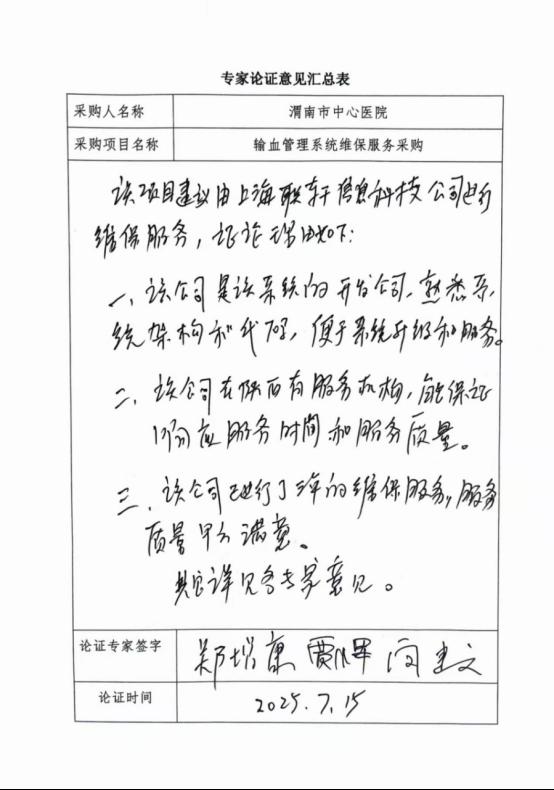 专家论证意见汇总表
采购人名称 渭南市中心医院
采购项目名称 输血管理系统维保服务采购
该项目建议由上海联轩信息科技公司进行
维保服务,论证理由如下:
一、该公司是该系统的开发公司,熟悉系
统架构和代码,便于系统升级和服务。
二、该公司在陕西有服务机构,能保证
响应服务时间和服务质量。
三、该公司已进行了三年的维保服务,服务
质量十分满意。
其它详见各专家意见。
论证专家签字 郑增康 贾 闫建文
论证时间 2025.7.15